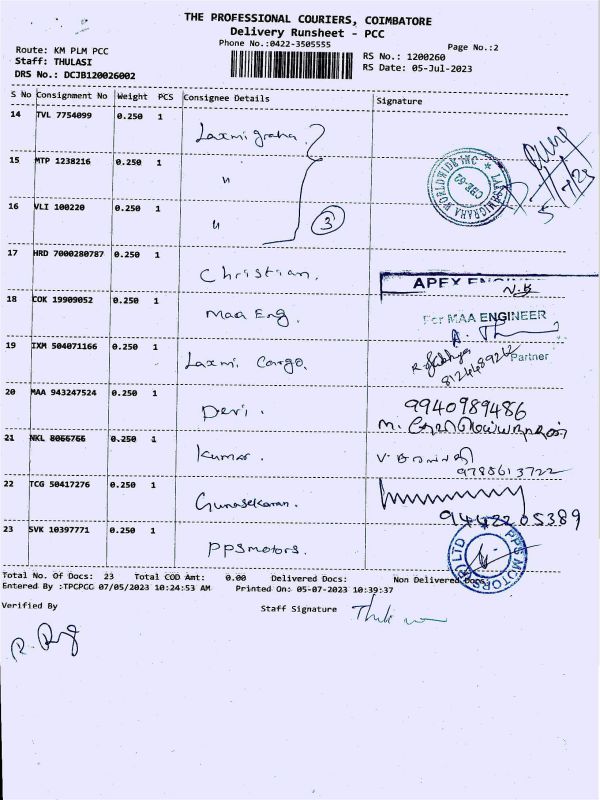 THE PROFESSIONAL COURIERS, COIMBATORE
Delivery Runsheet - PCC
Phone No.:0422-3505555
Page No.:2
Route: KM PLM PCC
Staff: THULASI
DRS No.: DCJB120026002
RS No.: 1200260
RS Date: 05-Jul-2023
S No Consignment No Weight PCS Consignee Details Signature
14 TVL 7754099 0.250 1 Laxmi graha
15 MTP 1238216 0.250 1 "
16 VLI 100220 0.250 1 " 3
LAXMIGRAHA WORLDWIDE INC ★ CBE-65
17 HRD 7000280787 0.250 1 Christian. APEX
18 COK 19909052 0.250 1 Maa Eng. For MAA ENGINEER
Partner
19 IXM 504071166 0.250 1 Laxmi Cargo. 8124489262
20 MAA 943247524 0.250 1 Devi. 9940989486
21 NKL 8066766 0.250 1 Kumar. 9788613722
22 TCG 50417276 0.250 1 Gunasekaran. 9442205389
23 SVK 10397771 0.250 1 PPSmotors. PPS MOTORS (P) LTD
Total No. Of Docs: 23 Total COD Amt: 0.00 Delivered Docs: Non Delivered Docs:
Entered By :TPCPCC 07/05/2023 10:24:53 AM Printed On: 05-07-2023 10:39:37
Verified By Staff Signature